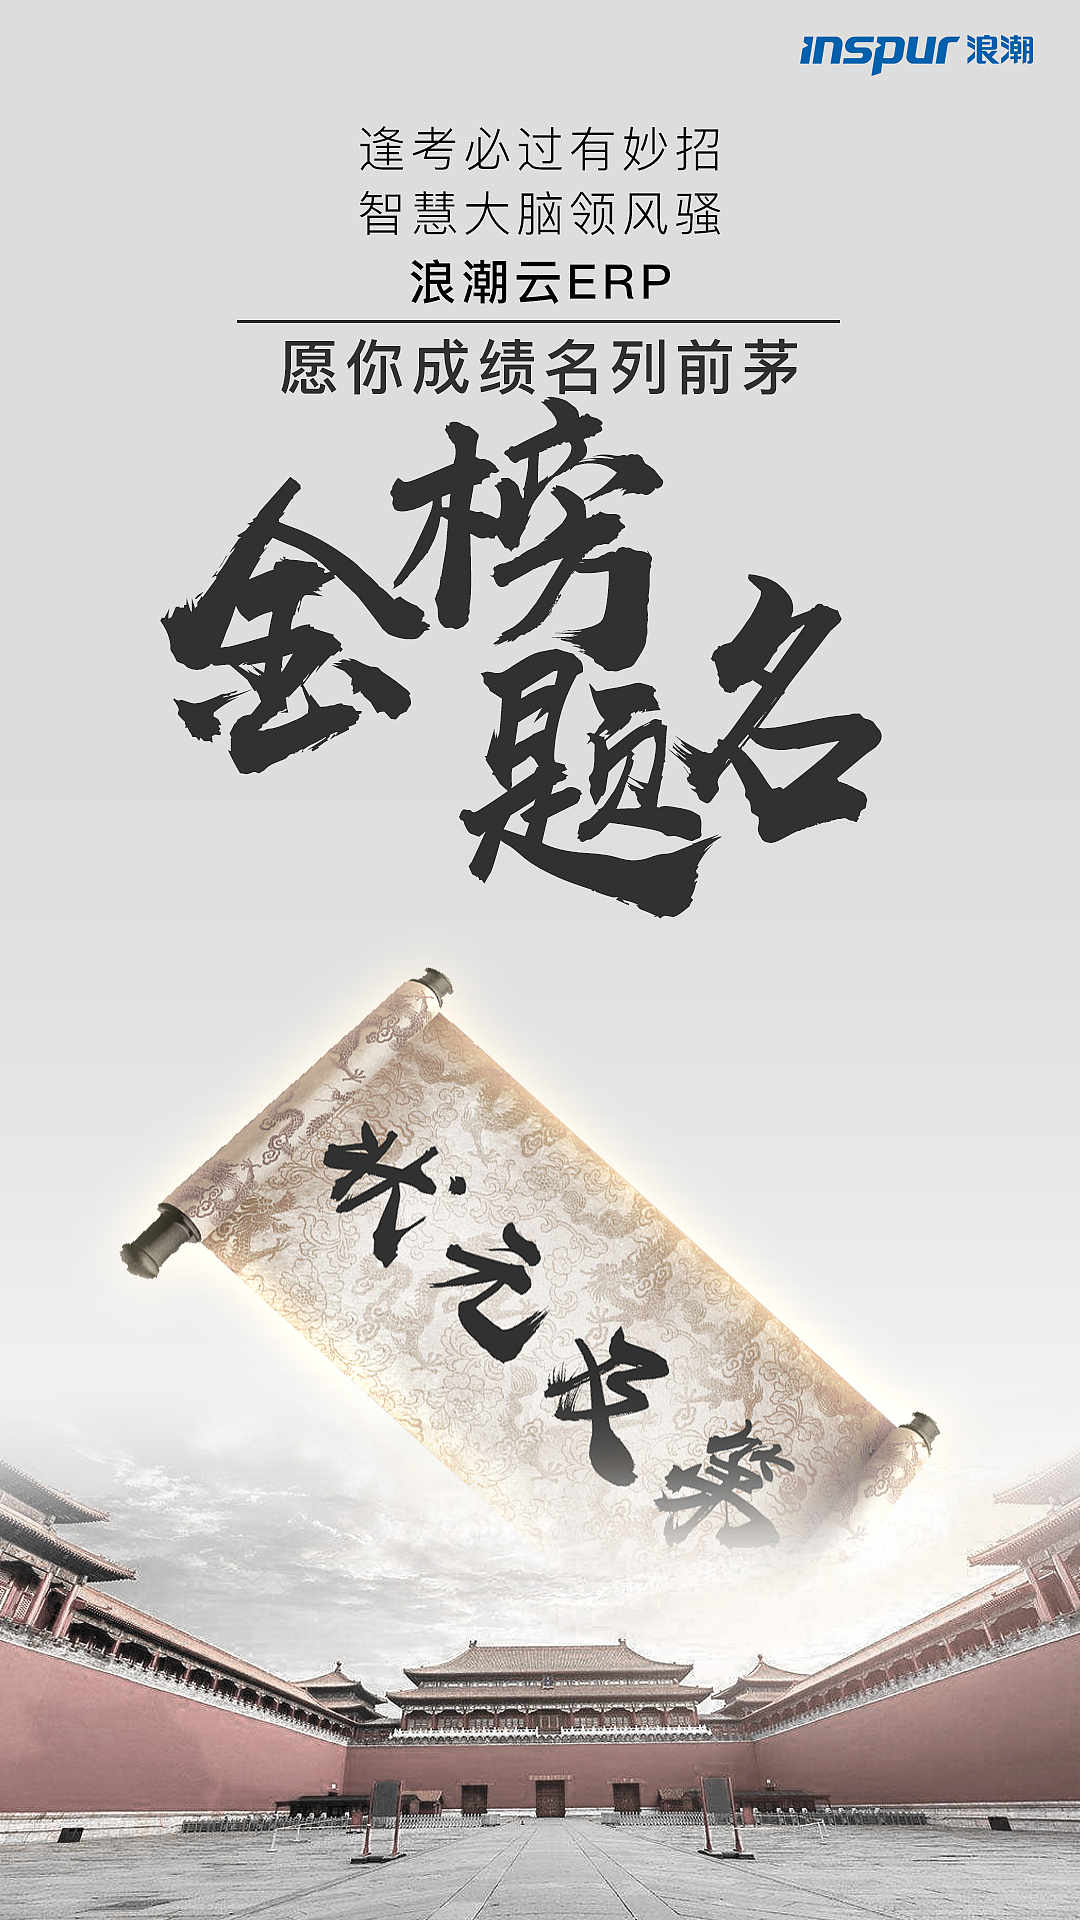 inspur 浪潮
逢考必过有妙招
智慧大脑领风骚
浪潮云ERP
愿你成绩名列前茅
金榜题名
状元中奖